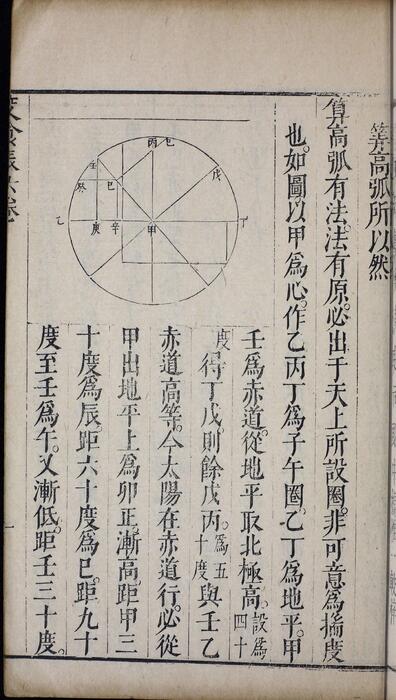 算高弧所以然
算高弧有法。法有原。必出于天上所設圈。非可意爲揣度
也。如圖以甲爲心。作乙丙丁爲子午圈。乙丁爲地平。甲
壬爲赤道。從地平取北極高。設爲四十
度得丁戊則餘戊丙。爲五十度與壬乙
赤道高等。今太陽在赤道行。必從
甲出地平上爲卯正漸高距甲三
十度爲辰。距六十度爲巳。距九十
度至壬爲午。又漸低。距壬三十度。
丙
巳
戊
壬
癸
巳
乙
庚
辛
甲
丁